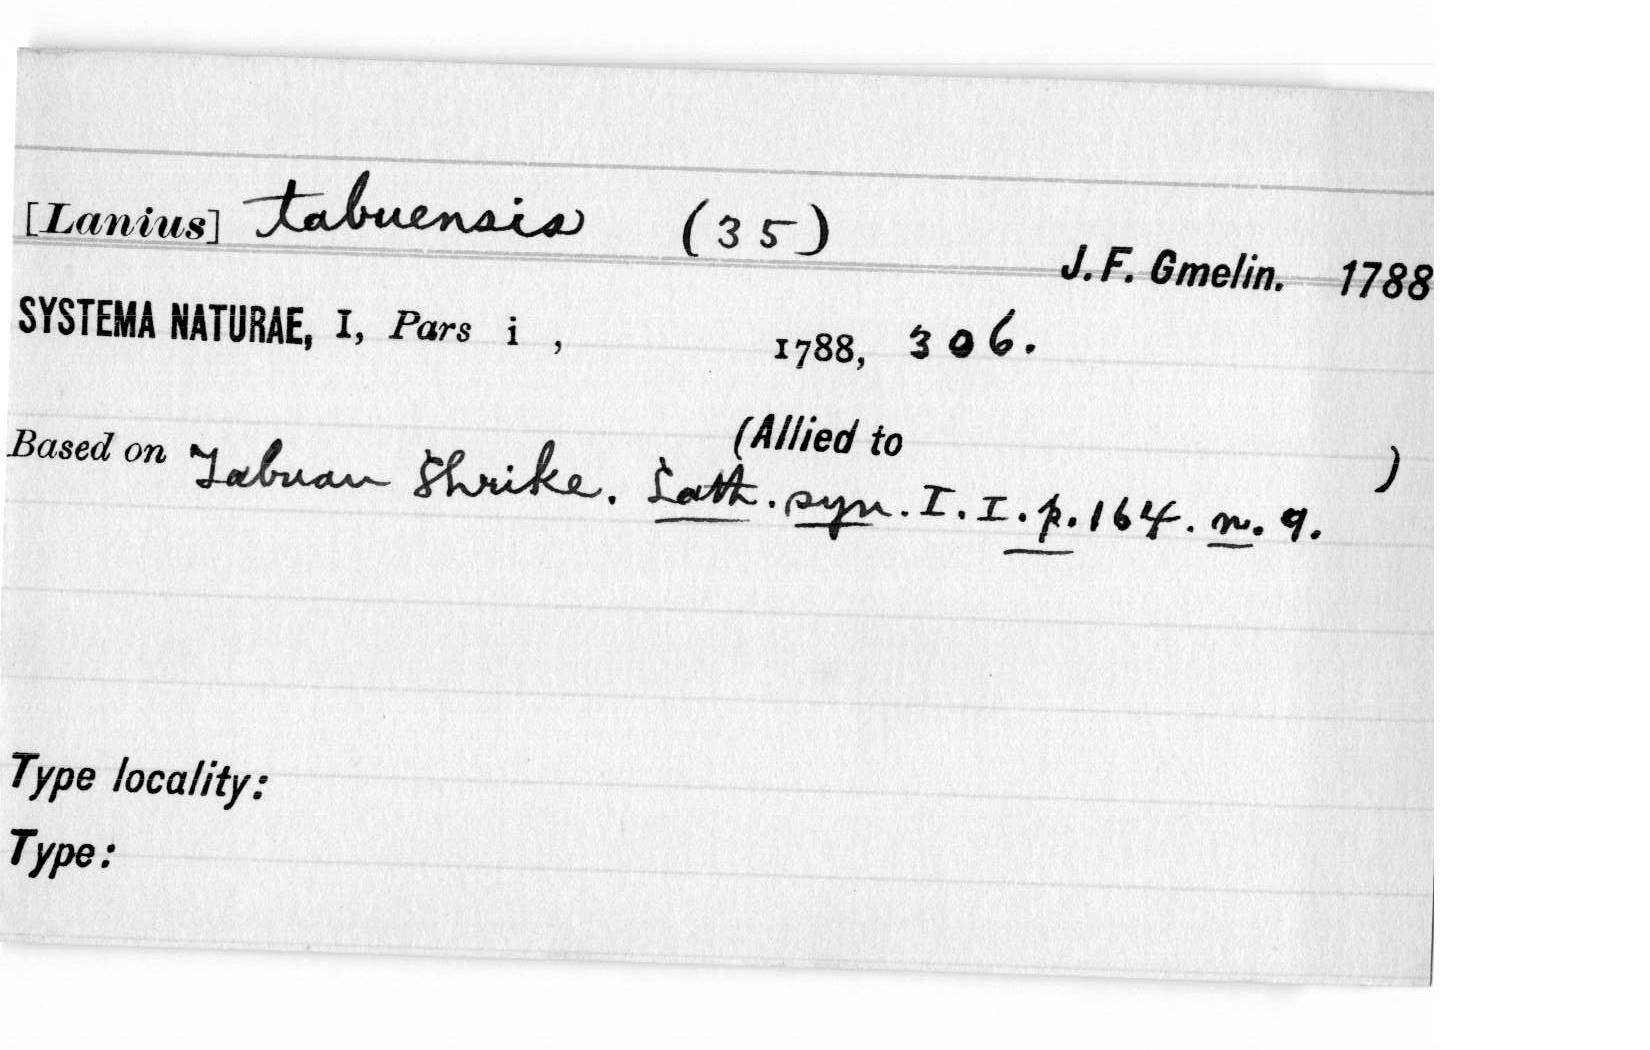 [Lanius] tabuensis (35)
J. F. Gmelin. 1788
SYSTEMA NATURAE, I, Pars i , 1788, 306.
(Allied to )
Based on Tabuan Shrike. Lath. syn. I. I. p. 164. n. 9.
Type locality:
Type: